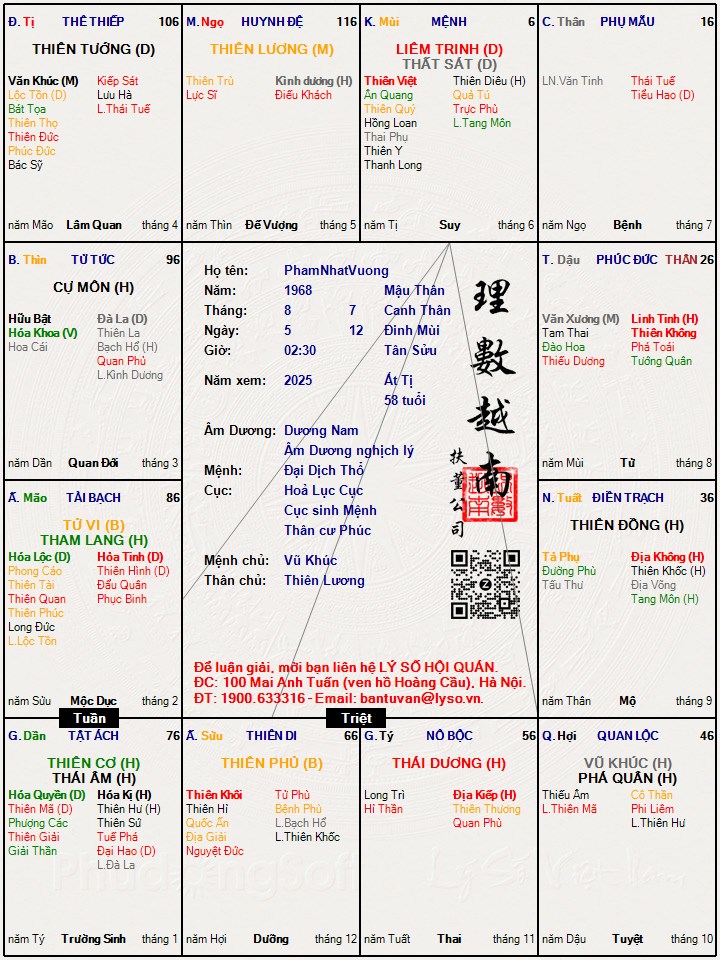 Đ. Tị THÊ THIẾP 106
THIÊN TƯỚNG (D)
Văn Khúc (M) Kiếp Sát
Lộc Tồn (D) Lưu Hà
Bát Tọa L.Thái Tuế
Thiên Thọ
Thiên Đức
Phúc Đức
Bác Sỹ
năm Mão Lâm Quan tháng 4
M. Ngọ HUYNH ĐỆ 116
THIÊN LƯƠNG (M)
Thiên Trù Kình dương (H)
Lực Sĩ Điếu Khách
năm Thìn Đế Vượng tháng 5
K. Mùi MỆNH 6
LIÊM TRINH (D)
THẤT SÁT (D)
Thiên Việt Thiên Diêu (H)
Ân Quang Quả Tú
Thiên Quý Trực Phù
Hồng Loan L.Tang Môn
Thai Phụ
Thiên Y
Thanh Long
năm Tị Suy tháng 6
C. Thân PHỤ MẪU 16
LN.Văn Tinh Thái Tuế
Tiểu Hao (D)
năm Ngọ Bệnh tháng 7
B. Thìn TỬ TỨC 96
CỰ MÔN (H)
Hữu Bật Đà La (D)
Hóa Khoa (V) Thiên La
Hoa Cái Bạch Hổ (H)
Quan Phủ
L.Kình Dương
năm Dần Quan Đới tháng 3
Họ tên: PhamNhatVuong
Năm: 1968 Mậu Thân
Tháng: 8 7 Canh Thân
Ngày: 5 12 Đinh Mùi
Giờ: 02:30 Tân Sửu
Năm xem: 2025 Ất Tị
58 tuổi
Âm Dương: Dương Nam
Âm Dương nghịch lý
Mệnh: Đại Dịch Thổ
Cục: Hoả Lục Cục
Cục sinh Mệnh
Thân cư Phúc
Mệnh chủ: Vũ Khúc
Thân chủ: Thiên Lương
理數越南
扶董公司
Để luận giải, mời bạn liên hệ LÝ SỐ HỘI QUÁN.
ĐC: 100 Mai Anh Tuấn (ven hồ Hoàng Cầu), Hà Nội.
ĐT: 1900.633316 - Email: bantuvan@lyso.vn.
T. Dậu PHÚC ĐỨC THÂN 26
Văn Xương (M) Linh Tinh (H)
Tam Thai Thiên Không
Đào Hoa Phá Toái
Thiếu Dương Tướng Quân
năm Mùi Tử tháng 8
Ấ. Mão TÀI BẠCH 86
TỬ VI (B)
THAM LANG (H)
Hóa Lộc (D) Hỏa Tinh (D)
Phong Cáo Thiên Hình (D)
Thiên Tài Đẩu Quân
Thiên Quan Phục Binh
Thiên Phúc
Long Đức
L.Lộc Tồn
năm Sửu Mộc Dục tháng 2
N. Tuất ĐIỀN TRẠCH 36
THIÊN ĐỒNG (H)
Tả Phụ Địa Không (H)
Đường Phù Thiên Khốc (H)
Tấu Thư Địa Võng
Tang Môn (H)
năm Thân Mộ tháng 9
Tuần
Triệt
G. Dần TẬT ÁCH 76
THIÊN CƠ (H)
THÁI ÂM (H)
Hóa Quyền (D) Hóa Kị (H)
Thiên Mã (D) Thiên Hư (H)
Phượng Các Thiên Sứ
Thiên Giải Tuế Phá
Giải Thần Đại Hao (D)
L.Đà La
năm Tý Trường Sinh tháng 1
Ấ. Sửu THIÊN DI 66
THIÊN PHỦ (B)
Thiên Khôi Tử Phù
Thiên Hỉ Bệnh Phù
Quốc Ấn L.Bạch Hổ
Địa Giải L.Thiên Khốc
Nguyệt Đức
năm Hợi Dưỡng tháng 12
G. Tý NÔ BỘC 56
THÁI DƯƠNG (H)
Long Trì Địa Kiếp (H)
Hỉ Thần Thiên Thương
Quan Phù
năm Tuất Thai tháng 11
Q. Hợi QUAN LỘC 46
VŨ KHÚC (H)
PHÁ QUÂN (H)
Thiếu Âm Cô Thần
L.Thiên Mã Phi Liêm
L.Thiên Hư
năm Dậu Tuyệt tháng 10